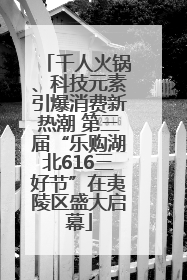 「千人火锅
、科技元素
引爆消费新
热潮 第三
届“乐购湖
北616三
好节”在夷
陵区盛大启
幕」